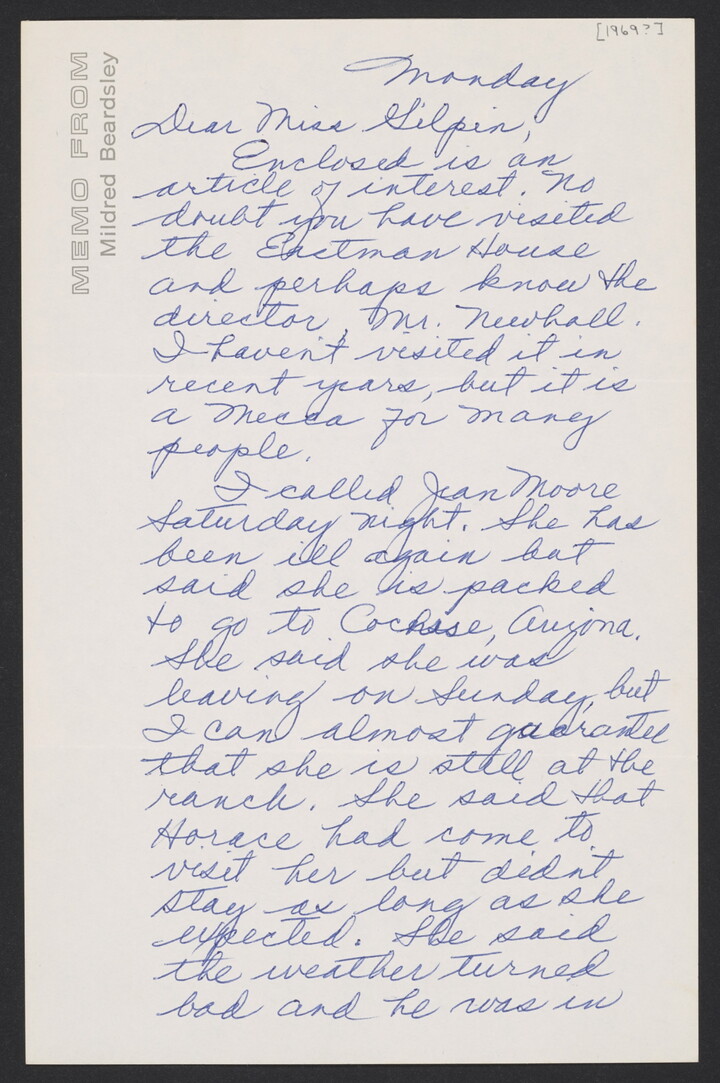 [1969?]
MEMO FROM
Mildred Beardsley
Monday
Dear Miss Gilpin,
Enclosed is an
article of interest. No
doubt you have visited
the Eastman House
and perhaps know the
director, Mr. Newhall.
I haven't visited it in
recent years, but it is
a Mecca for many
people.
I called Jean Moore
Saturday night. She has
been ill again but
said she is packed
to go to Cochise, Arizona.
She said she was
leaving on Sunday, but
I can almost guarantee
that she is still at the
ranch. She said that
Horace had come to
visit her but didnt
stay as long as she
expected. She said
the weather turned
bad and he was in